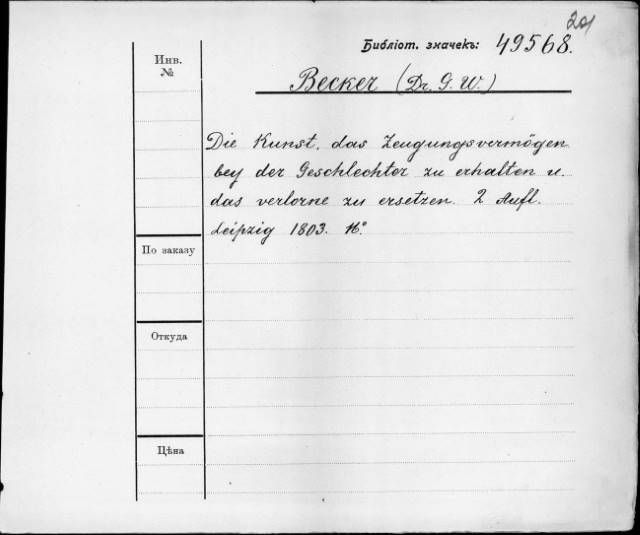 201
Библіот. значекъ: 49568.
Инв.
№
Becker (Dr. G. W.)
Die Kunst, das Zeugungsvermögen
bey der Geschlechter zu erhalten u.
das verlorne zu ersetzen. 2 Aufl.
Leipzig 1803. 16°
По заказу
Откуда
Цѣна